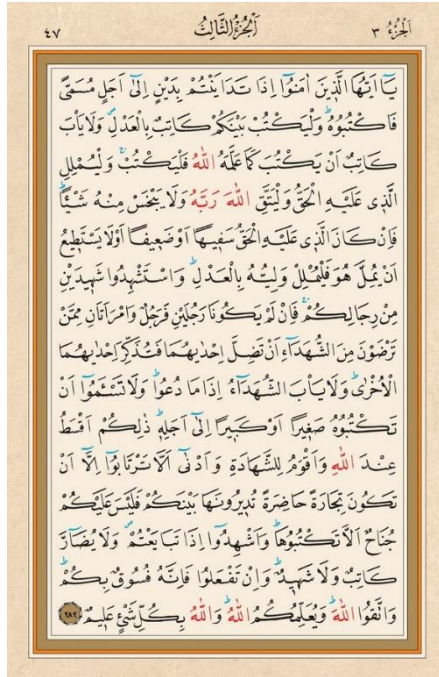 اَلْجُزْءُ ٣
اَلْجُزْءُ الثَّالِثُ
٤٧
يَٓا اَيُّهَا الَّذ۪ينَ اٰمَنُٓوا اِذَا تَدَايَنْتُمْ بِدَيْنٍ اِلٰٓى اَجَلٍ مُسَمًّى
فَاكْتُبُوهُۜ وَلْيَكْتُبْ بَيْنَكُمْ كَاتِبٌ بِالْعَدْلِۖ وَلَا يَأْبَ
كَاتِبٌ اَنْ يَكْتُبَ كَمَا عَلَّمَهُ اللّٰهُ فَلْيَكْتُبْۚ وَلْيُمْلِلِ
الَّذ۪ي عَلَيْهِ الْحَقُّ وَلْيَتَّقِ اللّٰهَ رَبَّهُ وَلَا يَبْخَسْ مِنْهُ شَيْـًٔاۜ
فَاِنْ كَانَ الَّذ۪ي عَلَيْهِ الْحَقُّ سَف۪يهًا اَوْ ضَع۪يفًا اَوْ لَا يَسْتَط۪يعُ
اَنْ يُمِلَّ هُوَ فَلْيُمْلِلْ وَلِيُّهُ بِالْعَدْلِۜ وَاسْتَشْهِدُوا شَه۪يدَيْنِ
مِنْ رِجَالِكُمْۚ فَاِنْ لَمْ يَكُونَا رَجُلَيْنِ فَرَجُلٌ وَامْرَاَتَانِ مِمَّنْ
تَرْضَوْنَ مِنَ الشُّهَدَٓاءِ اَنْ تَضِلَّ اِحْدٰيهُمَا فَتُذَكِّرَ اِحْدٰيهُمَا
الْاُخْرٰىۜ وَلَا يَأْبَ الشُّهَدَٓاءُ اِذَا مَا دُعُواۜ وَلَا تَسْـَٔمُٓوا اَنْ
تَكْتُبُوهُ صَغ۪يرًا اَوْ كَب۪يرًا اِلٰٓى اَجَلِه۪ۜ ذٰلِكُمْ اَقْسَطُ
عِنْدَ اللّٰهِ وَاَقْوَمُ لِلشَّهَادَةِ وَاَدْنٰٓى اَلَّا تَرْتَابُٓوا اِلَّٓا اَنْ
تَكُونَ تِجَارَةً حَاضِرَةً تُد۪يرُونَهَا بَيْنَكُمْ فَلَيْسَ عَلَيْكُمْ
جُنَاحٌ اَلَّا تَكْتُبُوهَاۜ وَاَشْهِدُٓوا اِذَا تَبَايَعْتُمْۖ وَلَا يُضَٓارَّ
كَاتِبٌ وَلَا شَه۪يدٌۜ وَاِنْ تَفْعَلُوا فَاِنَّهُ فُسُوقٌ بِكُمْۜ
وَاتَّقُوا اللّٰهَۜ وَيُعَلِّمُكُمُ اللّٰهُۜ وَاللّٰهُ بِكُلِّ شَيْءٍ عَل۪يمٌ ٢٨٢